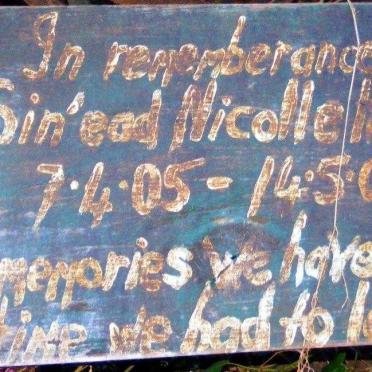 In rememberance
Sin'ead Nicolle
7.4.05 - 14.5.0
memories we have
time we had to